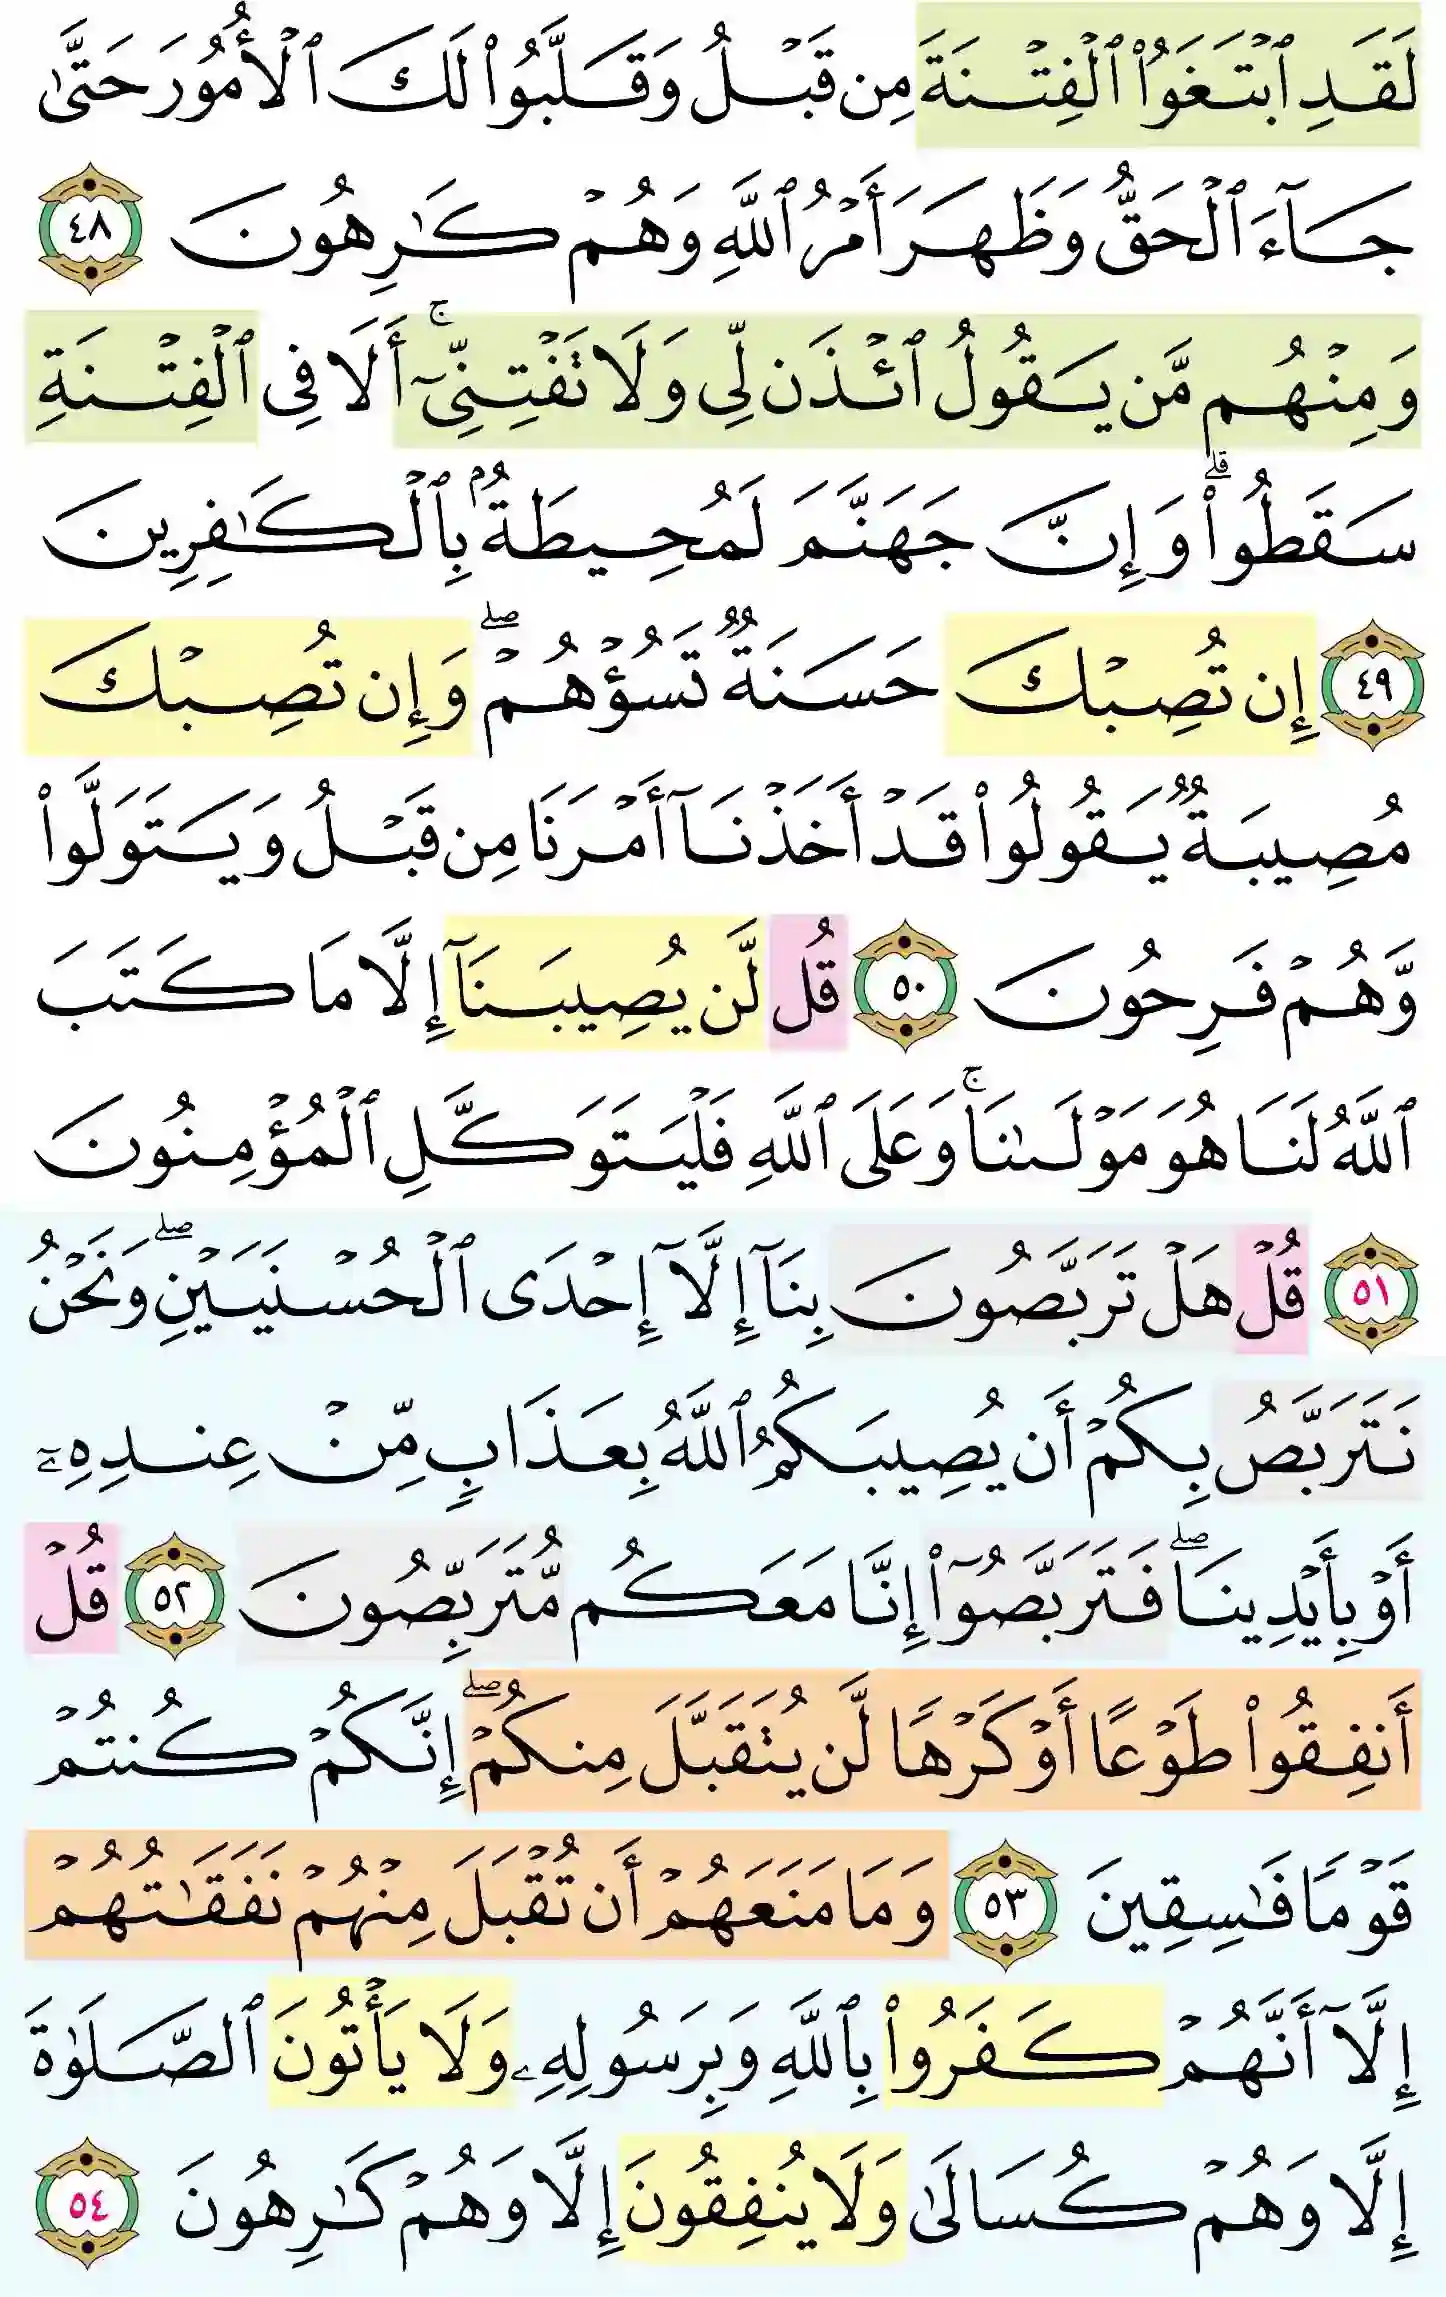 لَقَدِ ٱبۡتَغَوُاْ ٱلۡفِتۡنَةَ مِن قَبۡلُ وَقَلَّبُواْ لَكَ ٱلۡأُمُورَ حَتَّىٰ
جَآءَ ٱلۡحَقُّ وَظَهَرَ أَمۡرُ ٱللَّهِ وَهُمۡ كَٰرِهُونَ ٤٨
وَمِنۡهُم مَّن يَقُولُ ٱئۡذَن لِّي وَلَا تَفۡتِنِّيٓۚ أَلَا فِي ٱلۡفِتۡنَةِ
سَقَطُواْۗ وَإِنَّ جَهَنَّمَ لَمُحِيطَةُۢ بِٱلۡكَٰفِرِينَ
٤٩ إِن تُصِبۡكَ حَسَنَةٞ تَسُؤۡهُمۡۖ وَإِن تُصِبۡكَ
مُصِيبَةٞ يَقُولُواْ قَدۡ أَخَذۡنَآ أَمۡرَنَا مِن قَبۡلُ وَيَتَوَلَّواْ
وَّهُمۡ فَرِحُونَ ٥٠ قُل لَّن يُصِيبَنَآ إِلَّا مَا كَتَبَ
ٱللَّهُ لَنَا هُوَ مَوۡلَىٰنَاۚ وَعَلَى ٱللَّهِ فَلۡيَتَوَكَّلِ ٱلۡمُؤۡمِنُونَ
٥١ قُلۡ هَلۡ تَرَبَّصُونَ بِنَآ إِلَّآ إِحۡدَى ٱلۡحُسۡنَيَيۡنِۖ وَنَحۡنُ
نَتَرَبَّصُ بِكُمۡ أَن يُصِيبَكُمُ ٱللَّهُ بِعَذَابٖ مِّنۡ عِندِهِۦٓ
أَوۡ بِأَيۡدِينَاۖ فَتَرَبَّصُوٓاْ إِنَّا مَعَكُم مُّتَرَبِّصُونَ ٥٢ قُلۡ
أَنفِقُواْ طَوۡعًا أَوۡ كَرۡهٗا لَّن يُتَقَبَّلَ مِنكُمۡۖ إِنَّكُمۡ كُنتُمۡ
قَوۡمٗا فَٰسِقِينَ ٥٣ وَمَا مَنَعَهُمۡ أَن تُقۡبَلَ مِنۡهُمۡ نَفَقَٰتُهُمۡ
إِلَّآ أَنَّهُمۡ كَفَرُواْ بِٱللَّهِ وَبِرَسُولِهِۦ وَلَا يَأۡتُونَ ٱلصَّلَوٰةَ
إِلَّا وَهُمۡ كُسَالَىٰ وَلَا يُنفِقُونَ إِلَّا وَهُمۡ كَٰرِهُونَ ٥٤